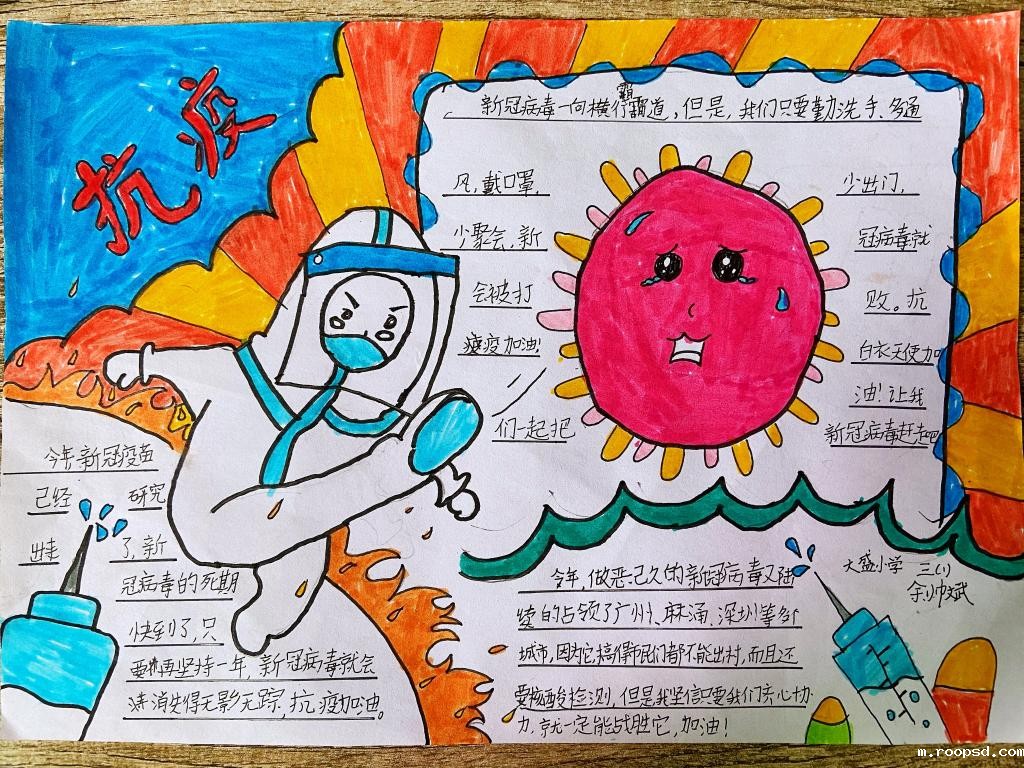 抗疫
霸
新冠病毒一向横行霸道，但是，我们只要勤洗手、多通
风，戴口罩， 少出门，
少聚会，新 冠病毒就
会被打 败。抗
疫加油！ 白衣天使加
油！让我
们一起把 新冠病毒赶走吧
今年新冠疫苗
已经 研究
出走 了，新
冠病毒的死期
快到了，只
要再坚持一年，新冠病毒就会
消失得无影无踪，抗疫加油。
今年，做恶已久的新冠病毒又陆
续的占领了广州、麻涌、深圳等多个
城市，因为它，搞得市民们都不能出村，而且还
要核酸检测，但是我坚信只要我们齐心协
力，就一定能战胜它，加油！
大盛小学 三(1)
m.roopsd.com